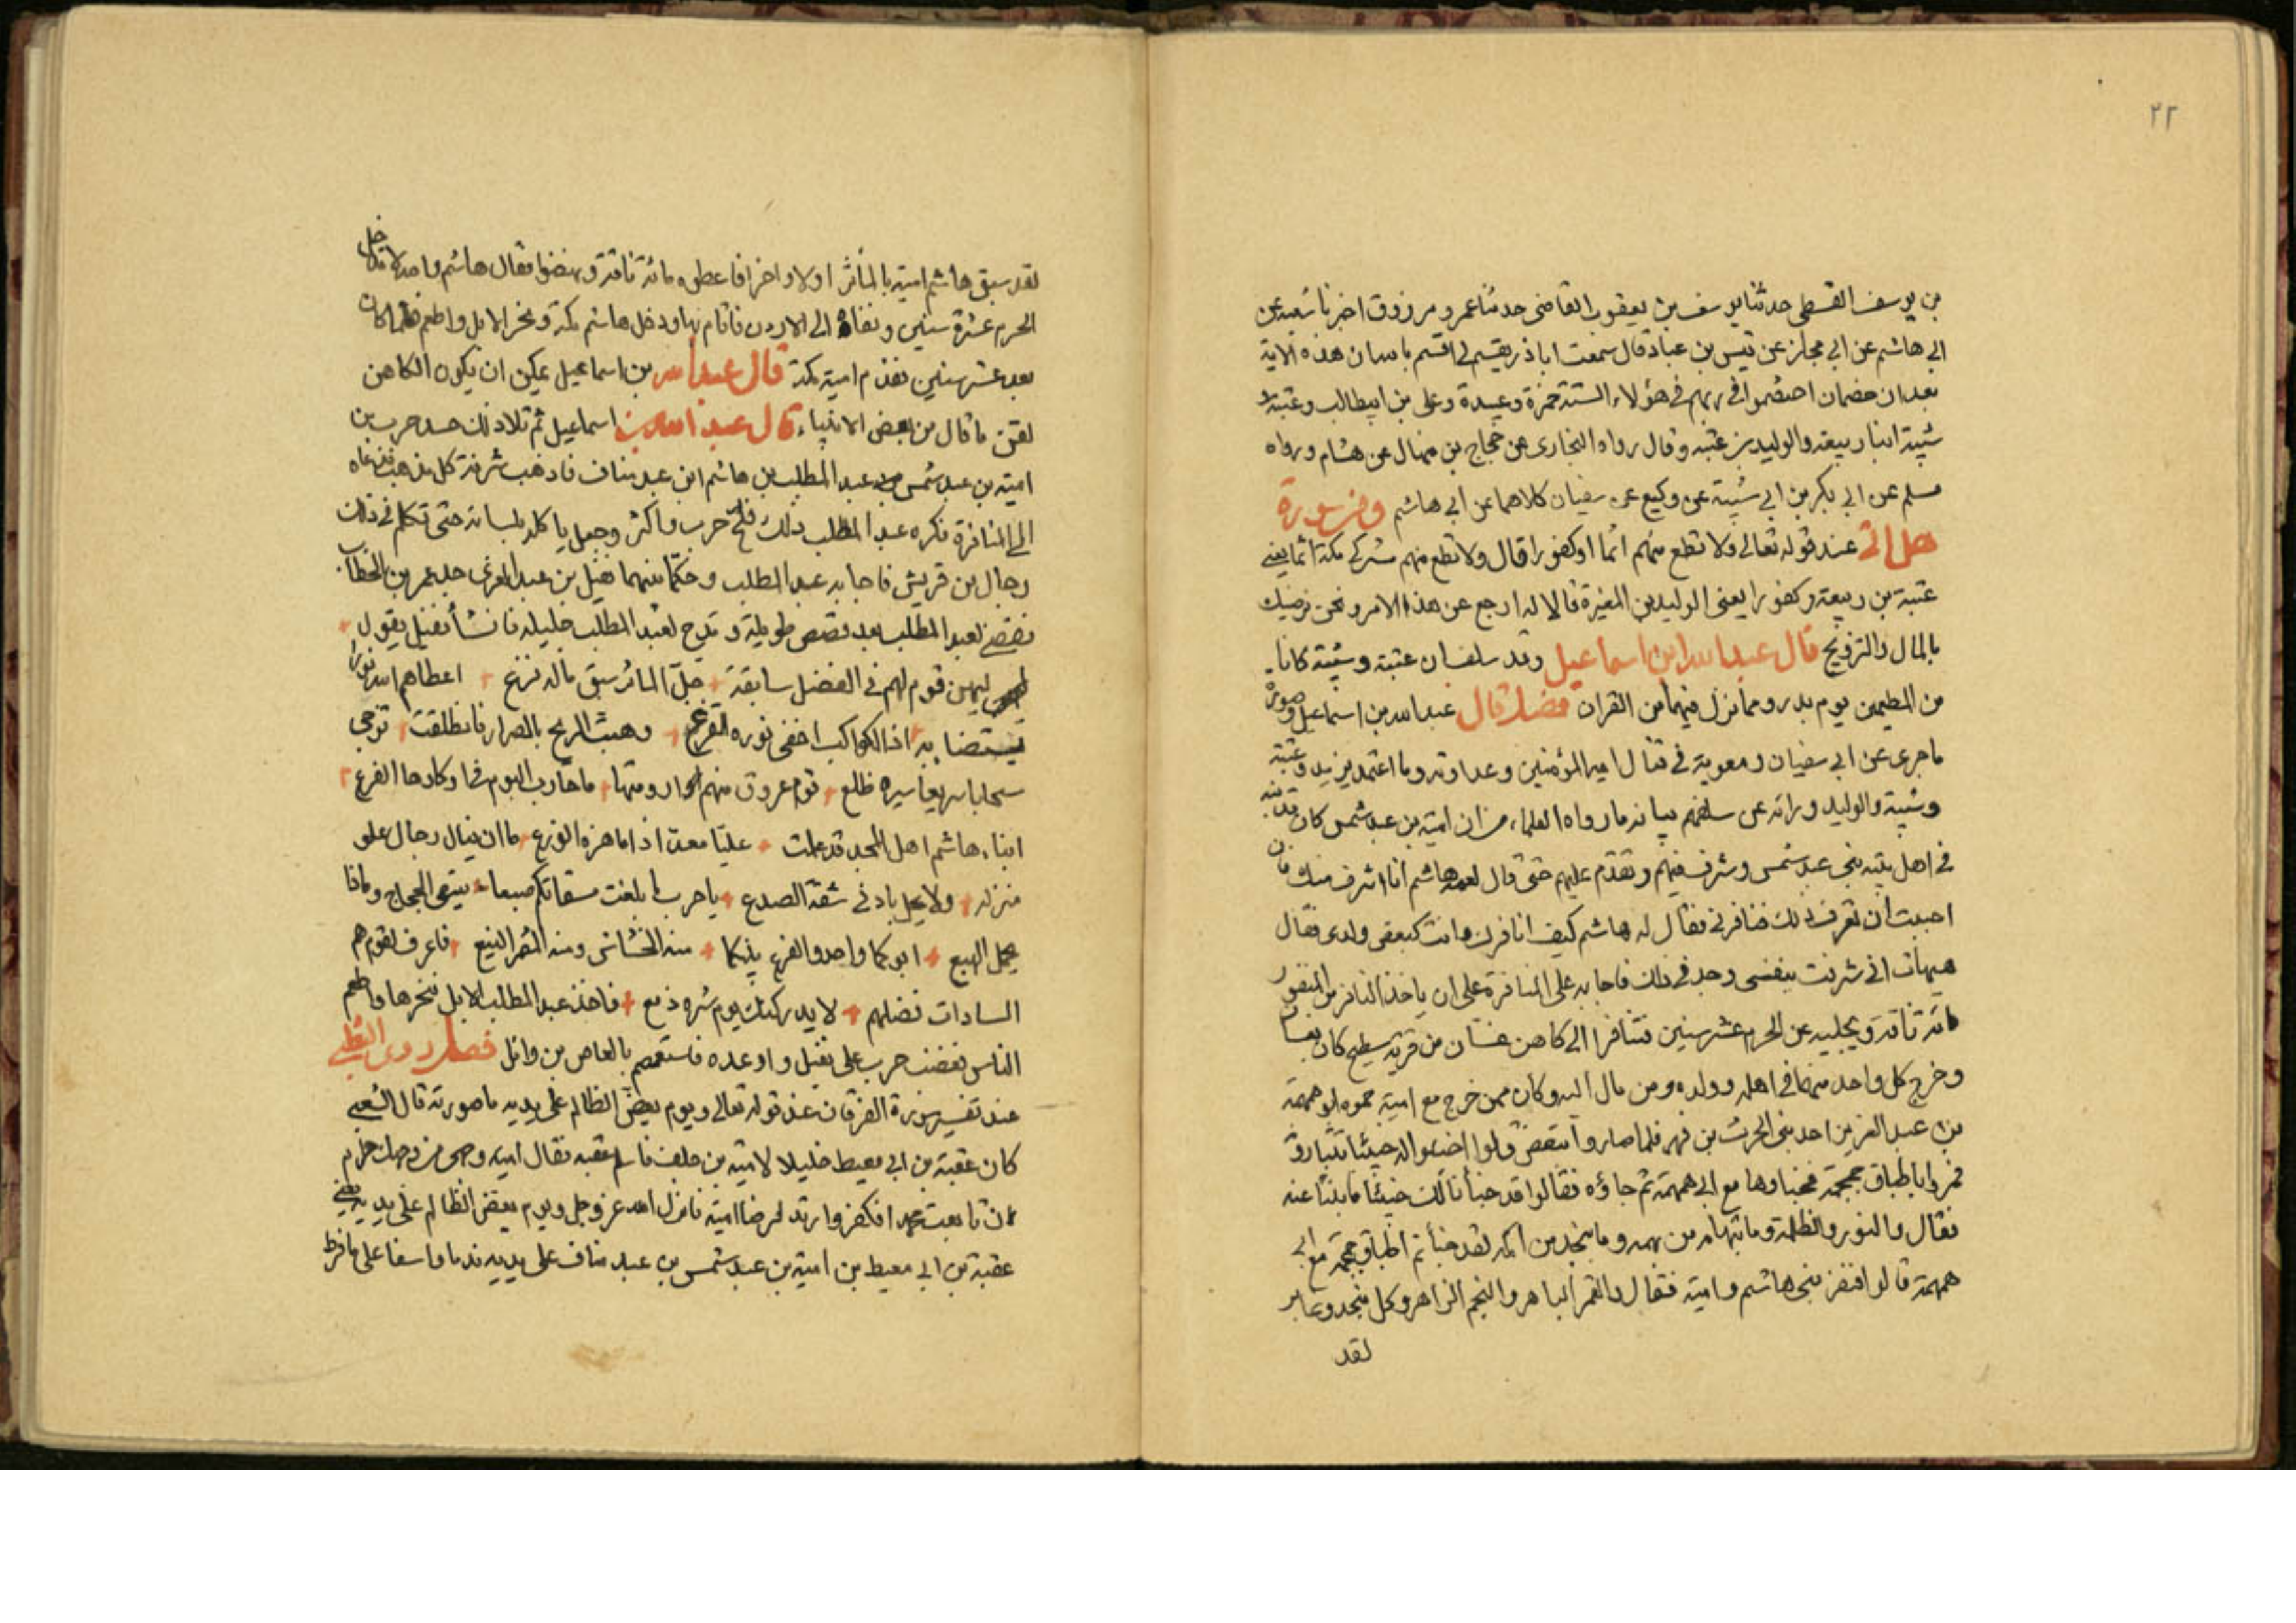 ٢٢
بن يوسف القسطى حدثنا يوسف بن يعقوب القاضى حدثنا عمرو مرزوق اخبرنا شعبه عن
ابى هاشم عن ابى مجلز عن قيس بن عباد قال سمعت اباذر يقسم لى اقسم بالله ان هذه الاية
هذان خصمان اختصموا فى ربهم فى هؤلاء الستة حمزة وعبيدة وعلى بن ابيطالب وعتبة و
شيبة ابنا ربيعه والوليد بن عتبه وقال رواه البخارى عن حجاج بن منهال عن هشام ورواه
مسلم عن ابى بكر بن ابى شيبة عن وكيع عن سفيان كلاهما عن ابى هاشم وفى سورة
هل اتى عند قوله تعالى ولا تطع منهم اثما او كفورا قال ولا تطع منهم مشركى مكة اثما يعنى
عتبة بن ربيعة وكفورا يعنى الوليد بن المغيرة قالا له ارجع عن هذا الامر ونحن نرضيك
بالمال والتزويج قال عبد الله ابن اسماعيل وقد سلف ان عتبة وشيبة كانا
من المطعمين يوم بدر ومما نزل فيهما من القران فصل قال عبد الله بن اسماعيل وصورة
ما جرى عن ابى سفيان ومعوية فى قتال امير المؤمنين وعداوته وما اعتمد يزيد وعتبة
وشيبة والوليد وراثه عن سلفهم بيانه مارواه العلماء من ان امية بن عبد شمس كان
فى اهل بيته بنى عبد شمس وشرف فيهم وتقدم عليهم حتى قال لعمه هاشم انا اشرف منك فان
احببت ان تعرف ذلك فنافرنى فقال له هاشم كيف انافرك وانت كبعض ولدى فقال
هيهات انى شرفت بنفسى وجد فى ذلك فاجابه على المنافرة على ان ياخذ النافر من المنفور
مائة ناقة ويجليه عن الحرم عشر سنين فتنافرا الى كاهن غسان من قرية سطيح كان
وخرج كل واحد منهما فى اهله وولده ومن مال اليه وكان ممن خرج مع امية حموه ابو همهمة
بن عبد العزى احد بنى الحرث بن فهر فلما صاروا قالوا اخبئوا له خبيئا
فمروا باطباق جمجمة فخبأوها مع ابى همهمة ثم جاؤه فقالوا قد خبأنا لك خبيئا فأنبئنا عنه
فقال والنور والظلمة وما بتهامة من بهمه وما بنجد من اكمه لقد خبأتم اطباق جمجمة مع ابى
همهمة قالوا فنفر بنى هاشم وامية فقال والقمر الباهر والنجم الزاهر وكل منجد وعابر
لقد
لقد سبق هاشم امية بالمأثر اولا واخرا فاعطوه مائة ناقة ونهضوا فقال هاشم
الحرم عشرة سنين ونفاه الى الاردن فاقام بها ودخل هاشم مكة ونحر الابل واطعم فلما كان
بعد عشر سنين تقدم امية مكة قال عبد الله بن اسماعيل يمكن ان يكون الكاهن
لقن ما قال من بعض الانبياء قال عبد الله بن اسماعيل ثم تلا ذلك حسد حرب بن
امية بن عبد شمس عبد المطلب بن هاشم ابن عبد مناف فاذهب شرفه كل مذهب فدعاه
الى المنافرة فكره عبد المطلب ذلك فلح حرب واكثر وجعل ياكله بلسانه حتى تكلم فى ذلك
رجال من قريش فاجابه عبد المطلب وحكما بينهما نفيل بن عبد العزى جد عمر بن الخطاب
فقضى لعبد المطلب بعد قصص طويلة ومدح لعبد المطلب جليله فانشأ نفيل يقول
ليهن قوم لهم فى الفضل سابقة جل المأثر سبق ماله نزع اعطاهم الله نورا
يستضا به اذا الكواكب اخفى نوره القزع وهبت الريح بالصراد فانطلقت تزجى
سحابا سريعا سيره ظلع قوم عروق منهم ما حارب اليوم فى اوكارها الفزع
ابناء هاشم اهل المجد قد علمت عليا معد اذا ما هزه الورع ما ان ينال رجال علو
منزله ولا يحل باذنى شقه الصدع يا حرب ما بلغت مسقاتكم هيعا يسقى الحجاج وماذا
يحمل الهبع ابوكما واحد والفرع بينكما منه الخشاش ومنه المثمر الينع فاعرف لقوم هم
السادات فضلهم لا يدركنك يوم شره ذمع فاخذ عبد المطلب الابل فنحرها واطعم
الناس فغضب حرب على نفيل واوعده فاستعصم بالعاص بن وائل فصل روى الثعلبى
عند تفسير سورة الفرقان عند قوله تعالى ويوم يعض الظالم على يديه ما صورته قال الشعبى
كان عقبة بن ابى معيط خليلا لامية بن خلف فاسلم عقبه فقال امية وجهى من وجهك حرام
ان تابعت محمدا فكفر وارتد لرضا امية فانزل الله عز وجل ويوم يعض الظالم على يديه يعنى
عقبة بن ابى معيط بن امية بن عبد شمس بن عبد مناف على يديه ندما واسفا على ما فرط